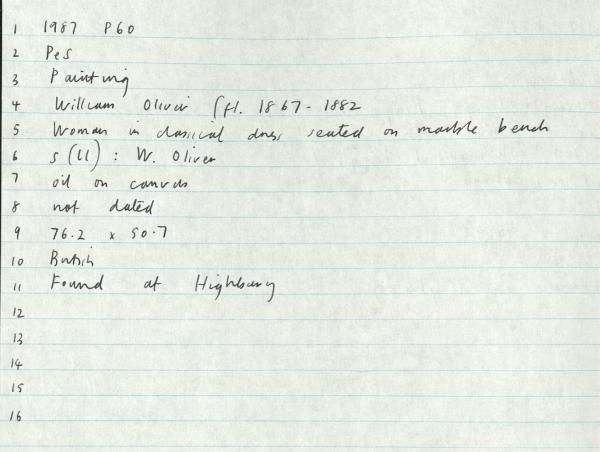 1 1987 P60
2 Pes
3 Painting
4 William Oliver (fl. 1867-1882
5 Woman in classical dress seated on marble bench
6 s (ll) : W. Oliver
7 oil on canvas
8 not dated
9 76.2 x 50.7
10 British
11 Found at Highbury
12
13
14
15
16